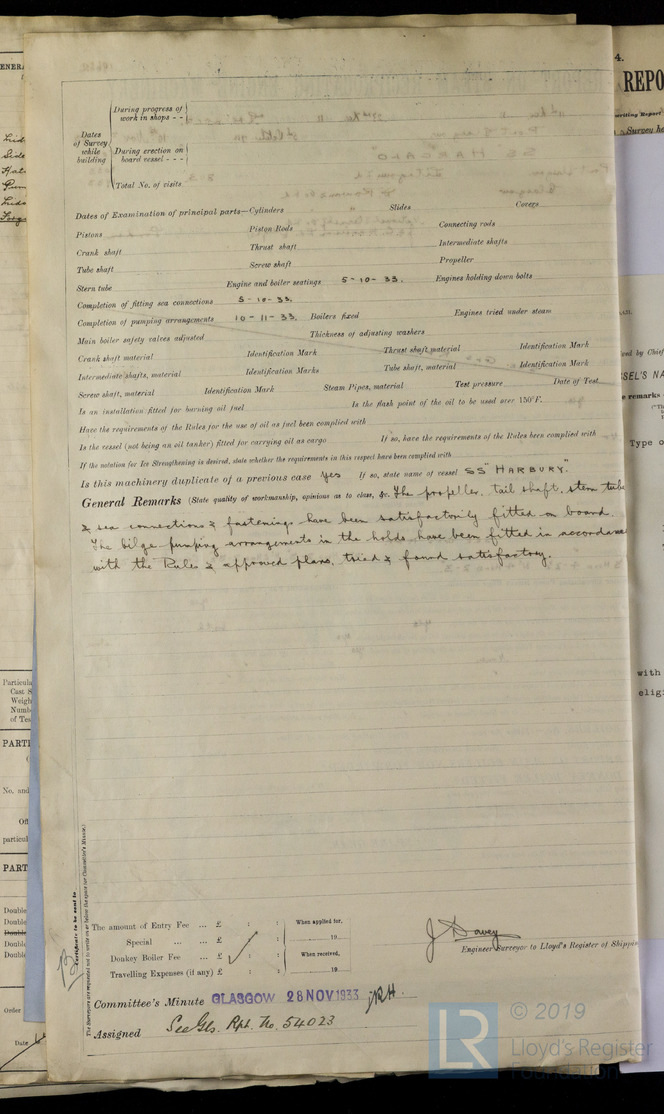 4.
GENERA
REPO
During progress of work in shops - -
Dates of Survey while building
During erection on board vessel - - -
Total No. of visits
Dates of Examination of principal parts—Cylinders Slides Covers
Pistons Piston Rods Connecting rods
Crank shaft Thrust shaft Intermediate shafts
Tube shaft Screw shaft Propeller
Stern tube Engine and boiler seatings 5-10-33. Engines holding down bolts
Completion of fitting sea connections 5-10-33.
Completion of pumping arrangements 10-11-33. Boilers fixed Engines tried under steam
Main boiler safety valves adjusted Thickness of adjusting washers
Crank shaft material Identification Mark Thrust shaft material Identification Mark
Intermediate shafts, material Identification Marks Tube shaft, material Identification Mark
Screw shaft, material Identification Mark Steam Pipes, material Test pressure Date of Test
Is an installation fitted for burning oil fuel Is the flash point of the oil to be used over 150°F.
Have the requirements of the Rules for the use of oil as fuel been complied with
Is the vessel (not being an oil tanker) fitted for carrying oil as cargo If so, have the requirements of the Rules been complied with
If the notation for Ice Strengthening is desired, state whether the requirements in this respect have been complied with
Is this machinery duplicate of a previous case Yes If so, state name of vessel SS "HARBURY".
General Remarks (State quality of workmanship, opinions as to class, &c. The propeller, tail shaft, stern tube
& sea connections & fastenings have been satisfactorily fitted on board.
The bilge pumping arrangements in the holds have been fitted in accordance
with the Rules & approved plans, tried & found satisfactory.
Certificate to be sent to
The Surveyors are requested not to write on or below the space for Committee's Minute.
The amount of Entry Fee ... £ : : When applied for,
Special ... ... £ : : 19
Donkey Boiler Fee ... £ : : When received,
Travelling Expenses (if any) £ : : 19
J Davey
Engineer Surveyor to Lloyd's Register of Shippin
Committee's Minute GLASGOW 28 NOV 1933
Assigned See Gls. Rpt. No. 54023
© 2019
LR
Lloyd's Register
Foundation